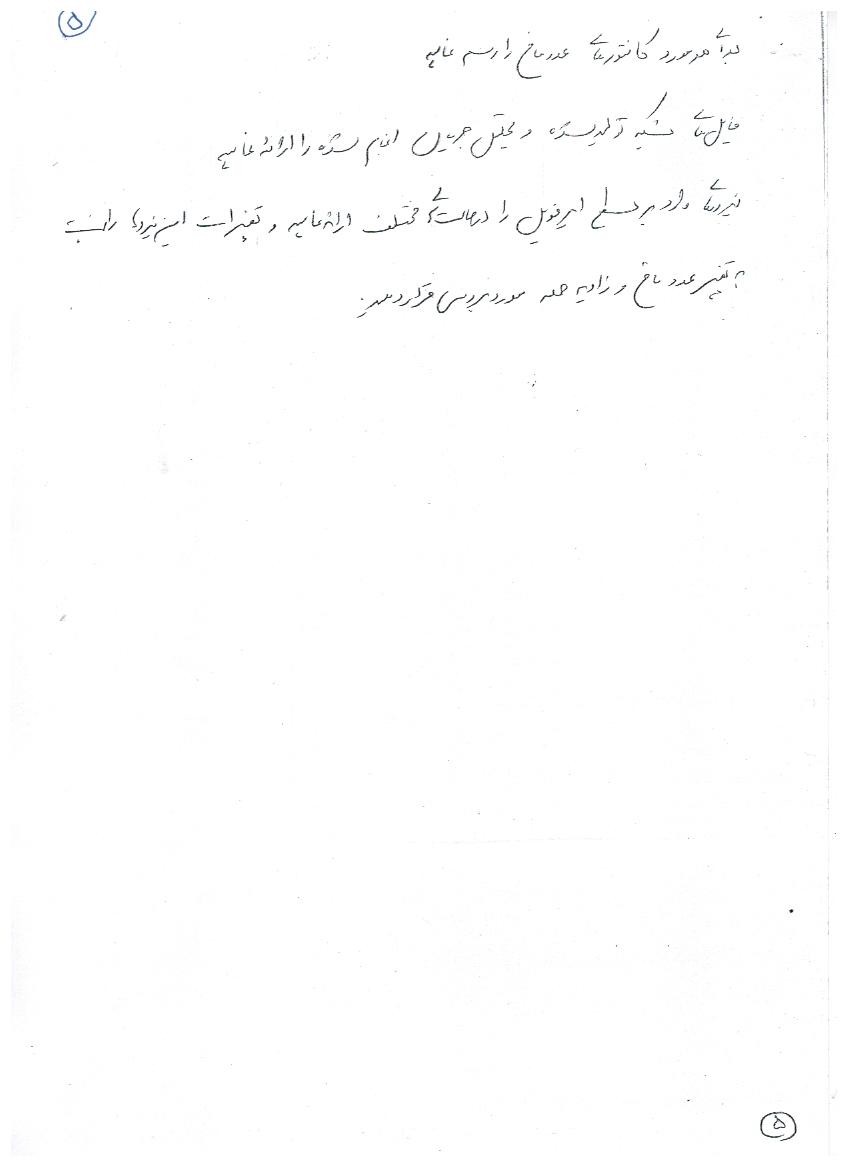 ۵
برای هر مورد کانتورهای عدد ماخ را رسم نمایید
فایل‌های شبکه تولید شده و تحلیل جریان انجام شده را ارائه نمایید
نیروهای وارد بر سطح ایرفویل را در حالت‌های مختلف ارائه نمایید و تغییرات این نیروها را نسبت
به تغییر عدد ماخ و زاویه حمله مورد بررسی قرار دهید.
۵